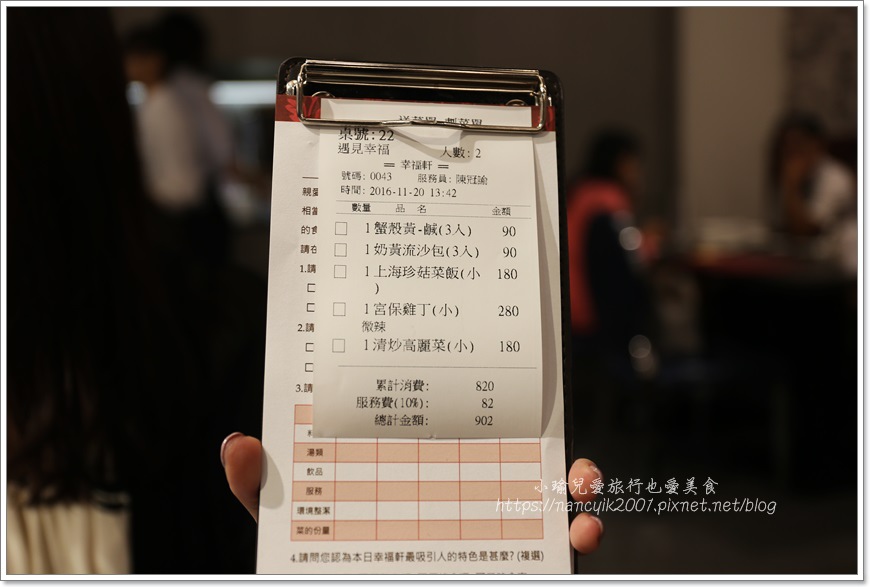 桌號: 22
遇見幸福 人數: 2
== 幸福軒 ==
號碼: 0043 服務員: 陳冠諭
時間: 2016-11-20 13:42
數量 品 名 金額
1 蟹殼黃-鹹(3入) 90
1 奶黃流沙包(3入) 90
1 上海珍菇菜飯(小 180
)
1 宮保雞丁(小) 280
微辣
1 清炒高麗菜(小) 180
累計消費: 820
服務費(10%): 82
總計金額: 902
親愛
相當
的食
請在
1.請
2.請
3.請
湯類
飲品
服務
環境整潔
菜的份量
4.請問您認為本日幸福軒最吸引人的特色是甚麼? (複選)
小瑜兒愛旅行也愛美食
https://nancyik2001.pixnet.net/blog